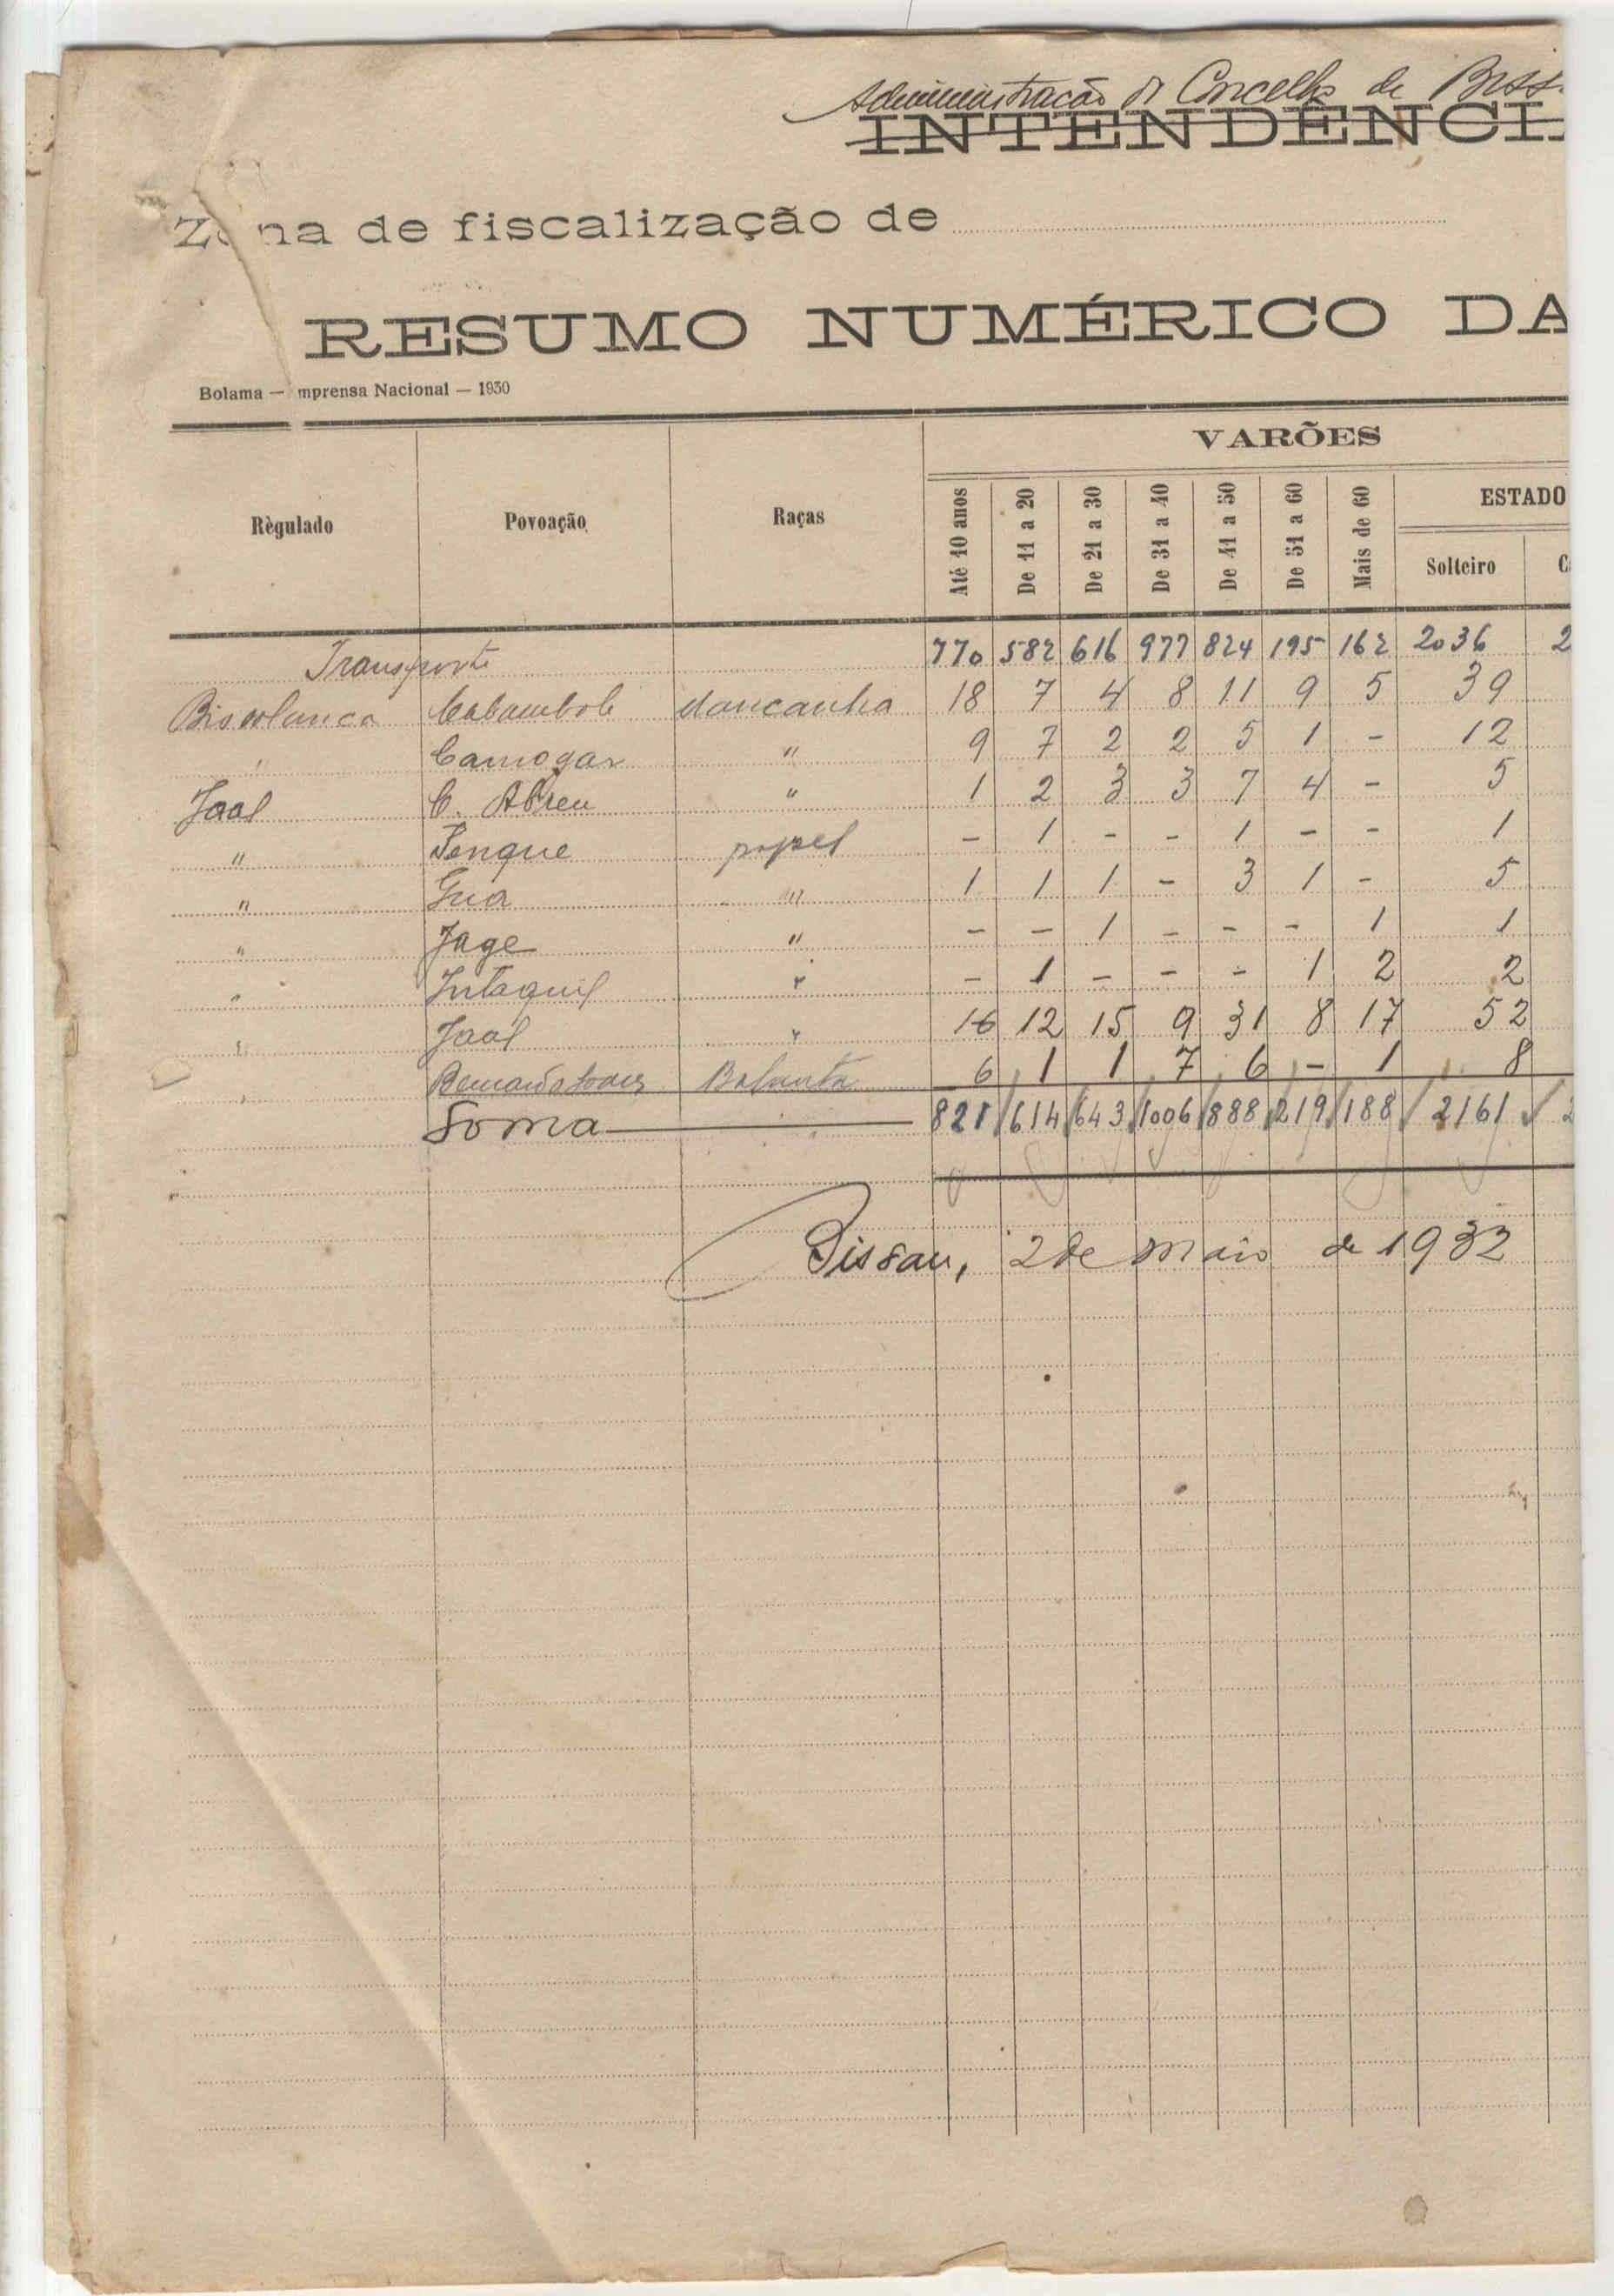 Administração do Concelho de Biss
INTENDÊNCI
Zona de fiscalização de
RESUMO NUMÉRICO DA
Bolama — mprensa Nacional — 1930
VARÕES
Règulado Povoação Raças Até 10 anos De 11 a 20 De 21 a 30 De 31 a 40 De 41 a 50 De 51 a 60 Mais de 60 ESTADO
Solteiro C
Transporte 770 582 616 977 824 195 162 2036 2
Bissalanca Cabambole Mancanha 18 7 4 8 11 9 5 39
Camogar " 9 7 2 2 5 1 - 12
Jaal C. Abreu " 1 2 3 3 7 4 - 5
" Penque papel - 1 - - 1 - - 1
" Guia " 1 1 1 - 3 1 - 5
" Jage " - - 1 - - - 1 1
" Intaquil " - 1 - - - 1 2 2
" Jaal " 16 12 15 9 31 8 17 52
" Balanta 6 1 1 7 6 - 1 8
Soma 821 614 643 1006 888 219 188 2161 2
Bissau, 2 de Maio de 1932